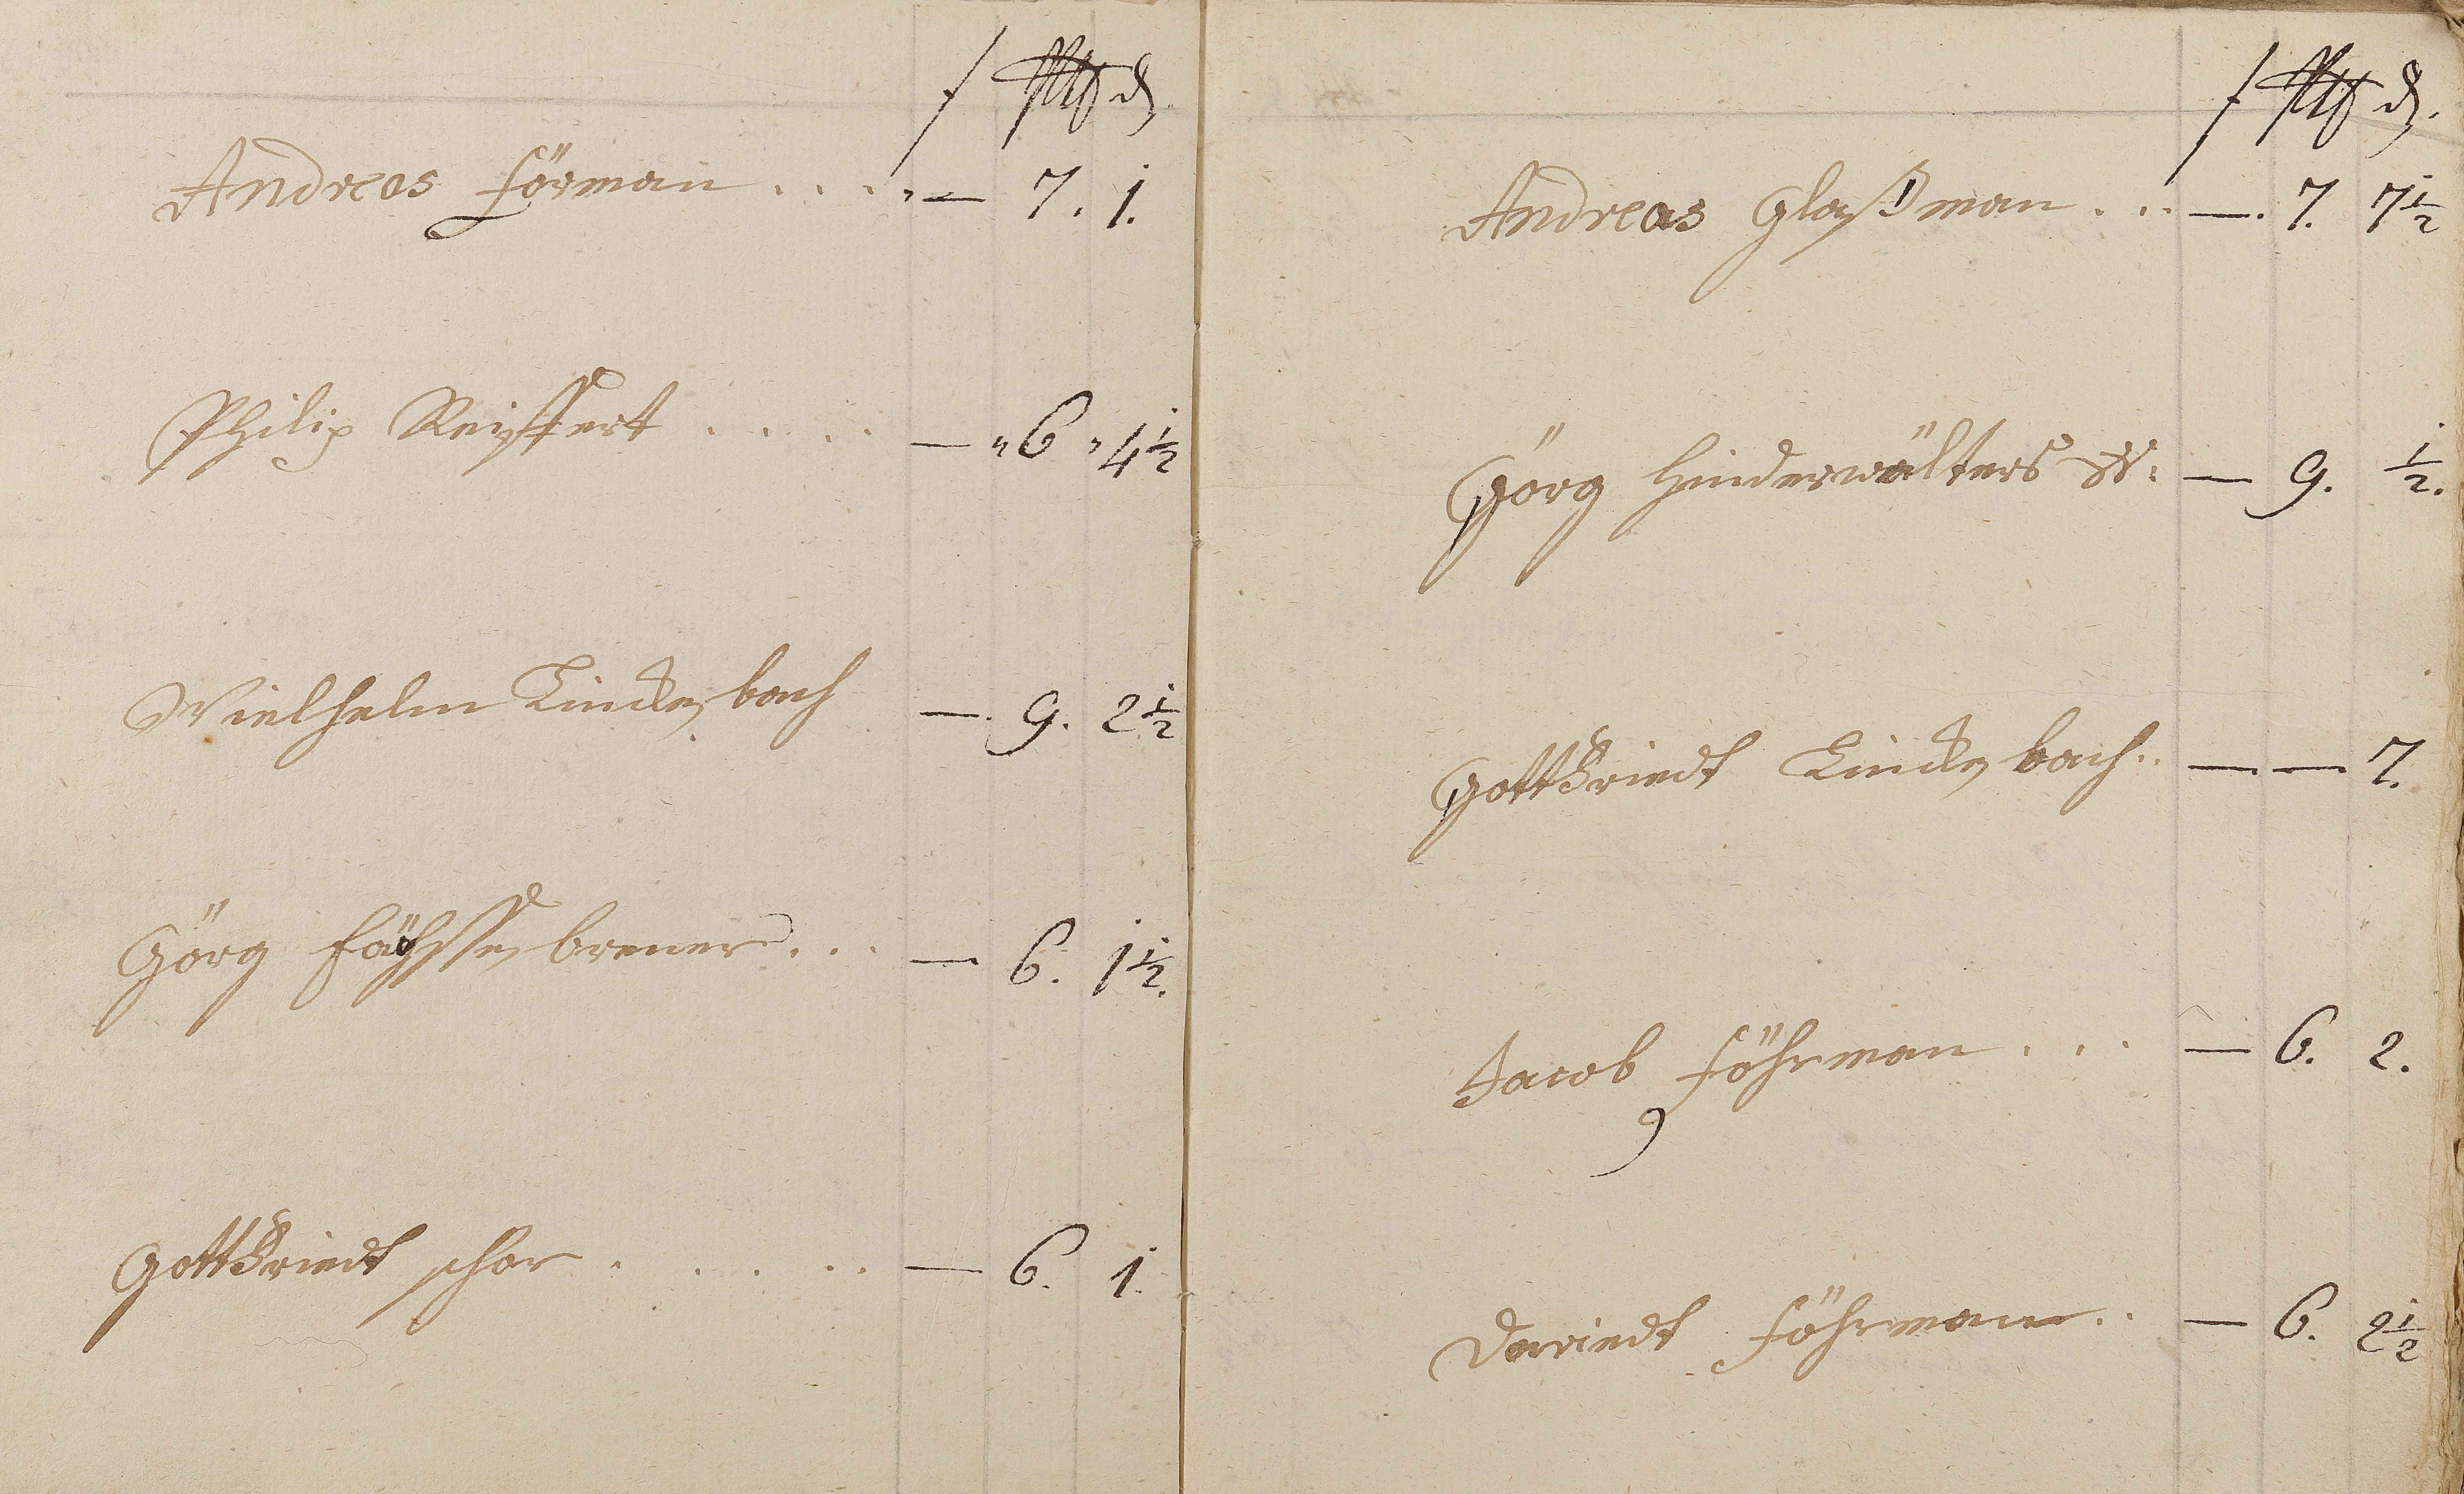 f Alb d
Andreas Förman . . . . — 7. 1.
Philip Reiffert . . . . — „ 6 „ 4½
Wielhelm Linden bach — 9. 2½
Görg Fähssen brener . . . — 6. 1½.
Gottfriedt schor . . . . . — 6. 1.
f Alb d.
Andreas Glaßman . . . — 7. 7½
Görg Hinderwälters — 9. ½.
Gottfriedt Linden bach . . — — 7.
Jacob Föhrman . . . — 6. 2.
Daviedt Föhrman . . — 6. 2½